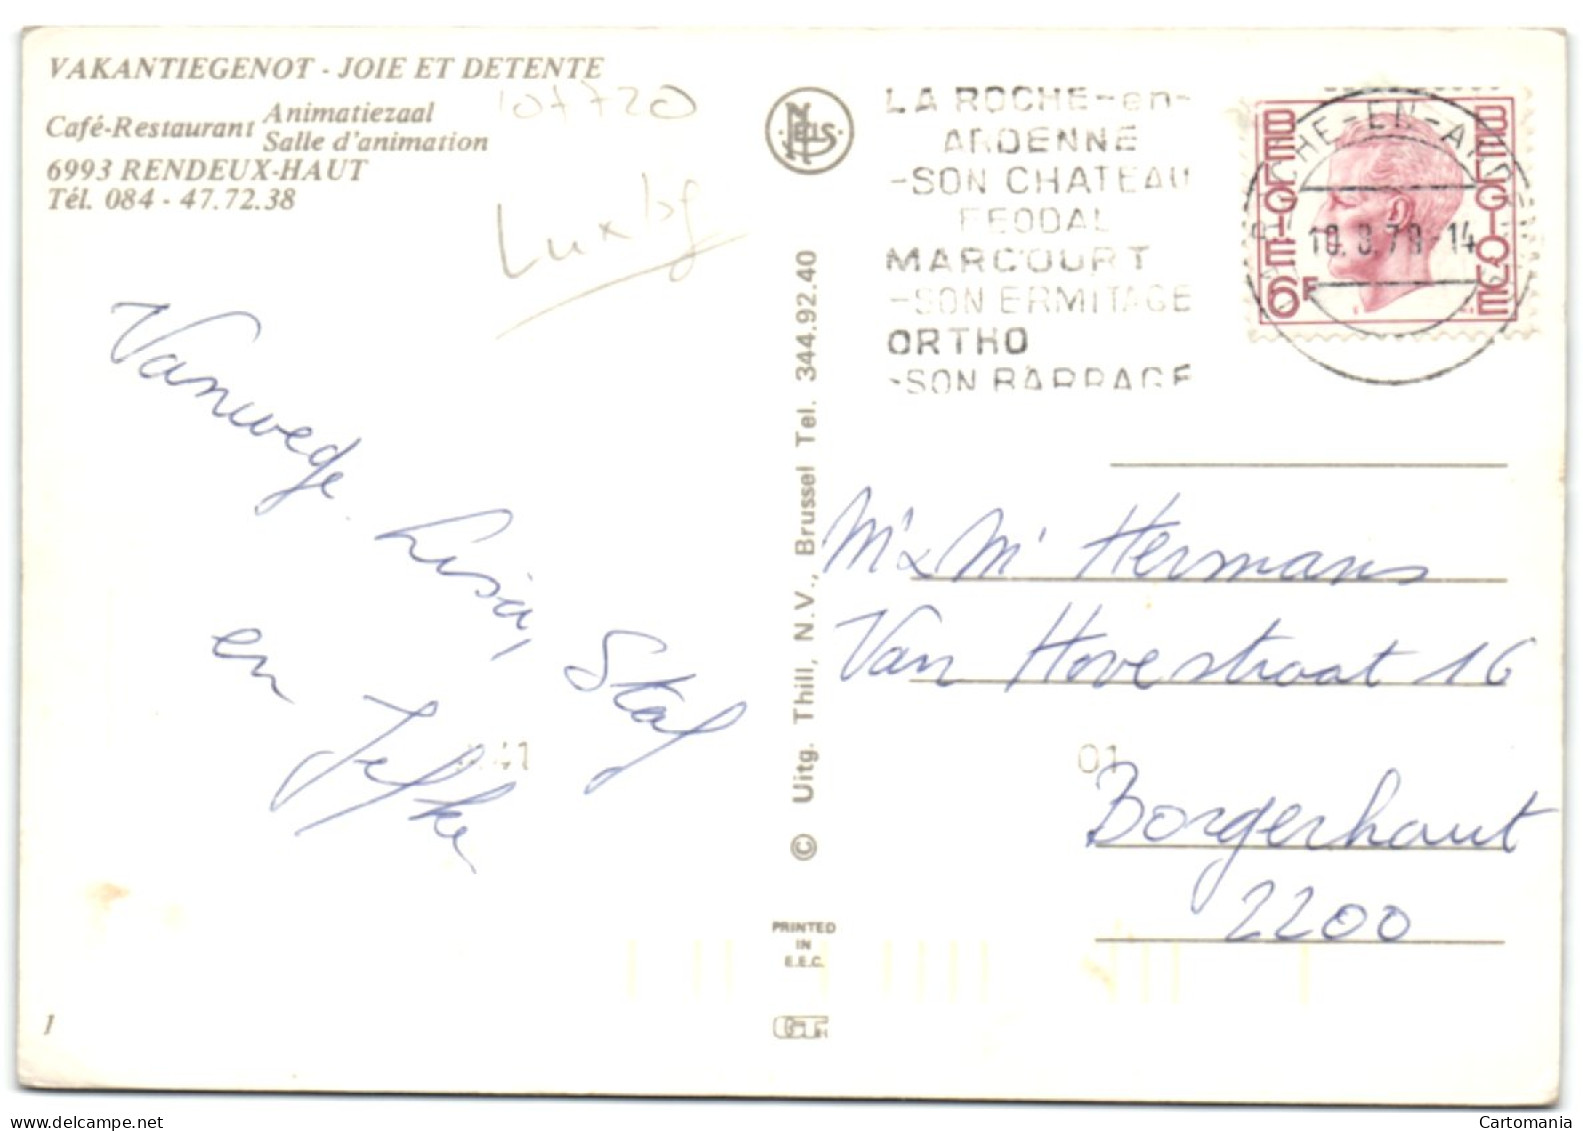 VAKANTIEGENOT - JOIE ET DETENTE
Café-Restaurant Animatiezaal
Salle d'animation
6993 RENDEUX-HAUT
Tél. 084 - 47.72.38
107720
Luxbg
Nels
LA ROCHE-en-
ARDENNE
-SON CHATEAU
FEODAL
MARCOURT
-SON ERMITAGE
ORTHO
-SON BARRAGE
BELGIE BELGIQUE
6F
ROCHE-EN-ARDENNE
Vanwege
Lisa, Staf
en Jefke
41
© Uitg. Thill, N.V., Brussel Tel. 344.92.40
M' & M' Hermans
Van Hovestraat 16
01
Borgerhout
2200
PRINTED
IN
E.E.C.
1
Cartomania